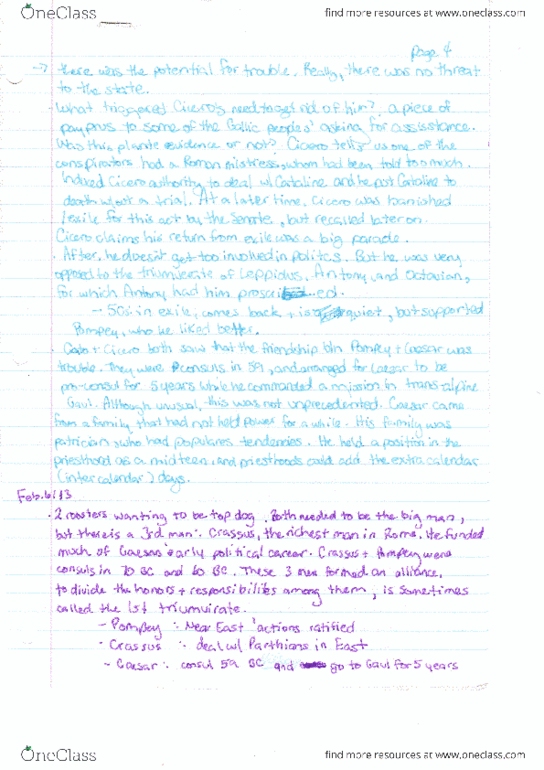 OneClass
find more resources at www.oneclass.com
page 4
→ there was the potential for trouble. Really, there was no threat
to the state.
· What triggered Cicero's need to get rid of him? a piece of
payprus to some of the Gallic peoples' asking for assistance.
Was this plante evidence or not? Cicero tells us one of the
conspirators had a Roman mistress, whom had been told too much.
Indeed Cicero authority to deal w/ Cataline and he put Cataline to
death w/out a trial. At a later time, Cicero was banished
/exile for this act by the Senate, but recalled later on.
Cicero claims his return from exile was a big parade.
· After, he doesn't get too involved in politics. But he was very
opposed to the triumverate of Leppidus, Antony, and Octavian,
for which Antony had him proscribed.
→ 50s: in exile, comes back + is quiet, but supported
Pompey, who he liked better.
· Cato + Cicero both saw that the friendship b/n Pompey + Caesar was
trouble. They were consuls in 59, and arranged for Caesar to be
pro-consul for 5 years while he commanded a mission in trans alpine
Gaul. Although unusual, this was not unprecedented. Caesar came
from a family that had not held power for a while. His family was
patricians who had populares tendencies. He held a position in the
priesthood as a mid teen, and priesthoods could add the extra calendar
(intercalendar) days.
Feb. 6/13
· 2 roosters wanting to be top dog. Both needed to be the big man,
but there is a 3rd man: Crassus, the richest man in Rome. He funded
much of Caesar's early political career. Crassus + Pompey were
consuls in 70 BC and 60 BC. These 3 men formed an alliance,
to divide the honors + responsibilites among them, is sometimes
called the 1st triumvirate.
- Pompey: Near East actions ratified
- Crassus: deal w/ Parthians in East
- Caesar: consul 59 BC and go to Gaul for 5 years
OneClass
find more resources at www.oneclass.com